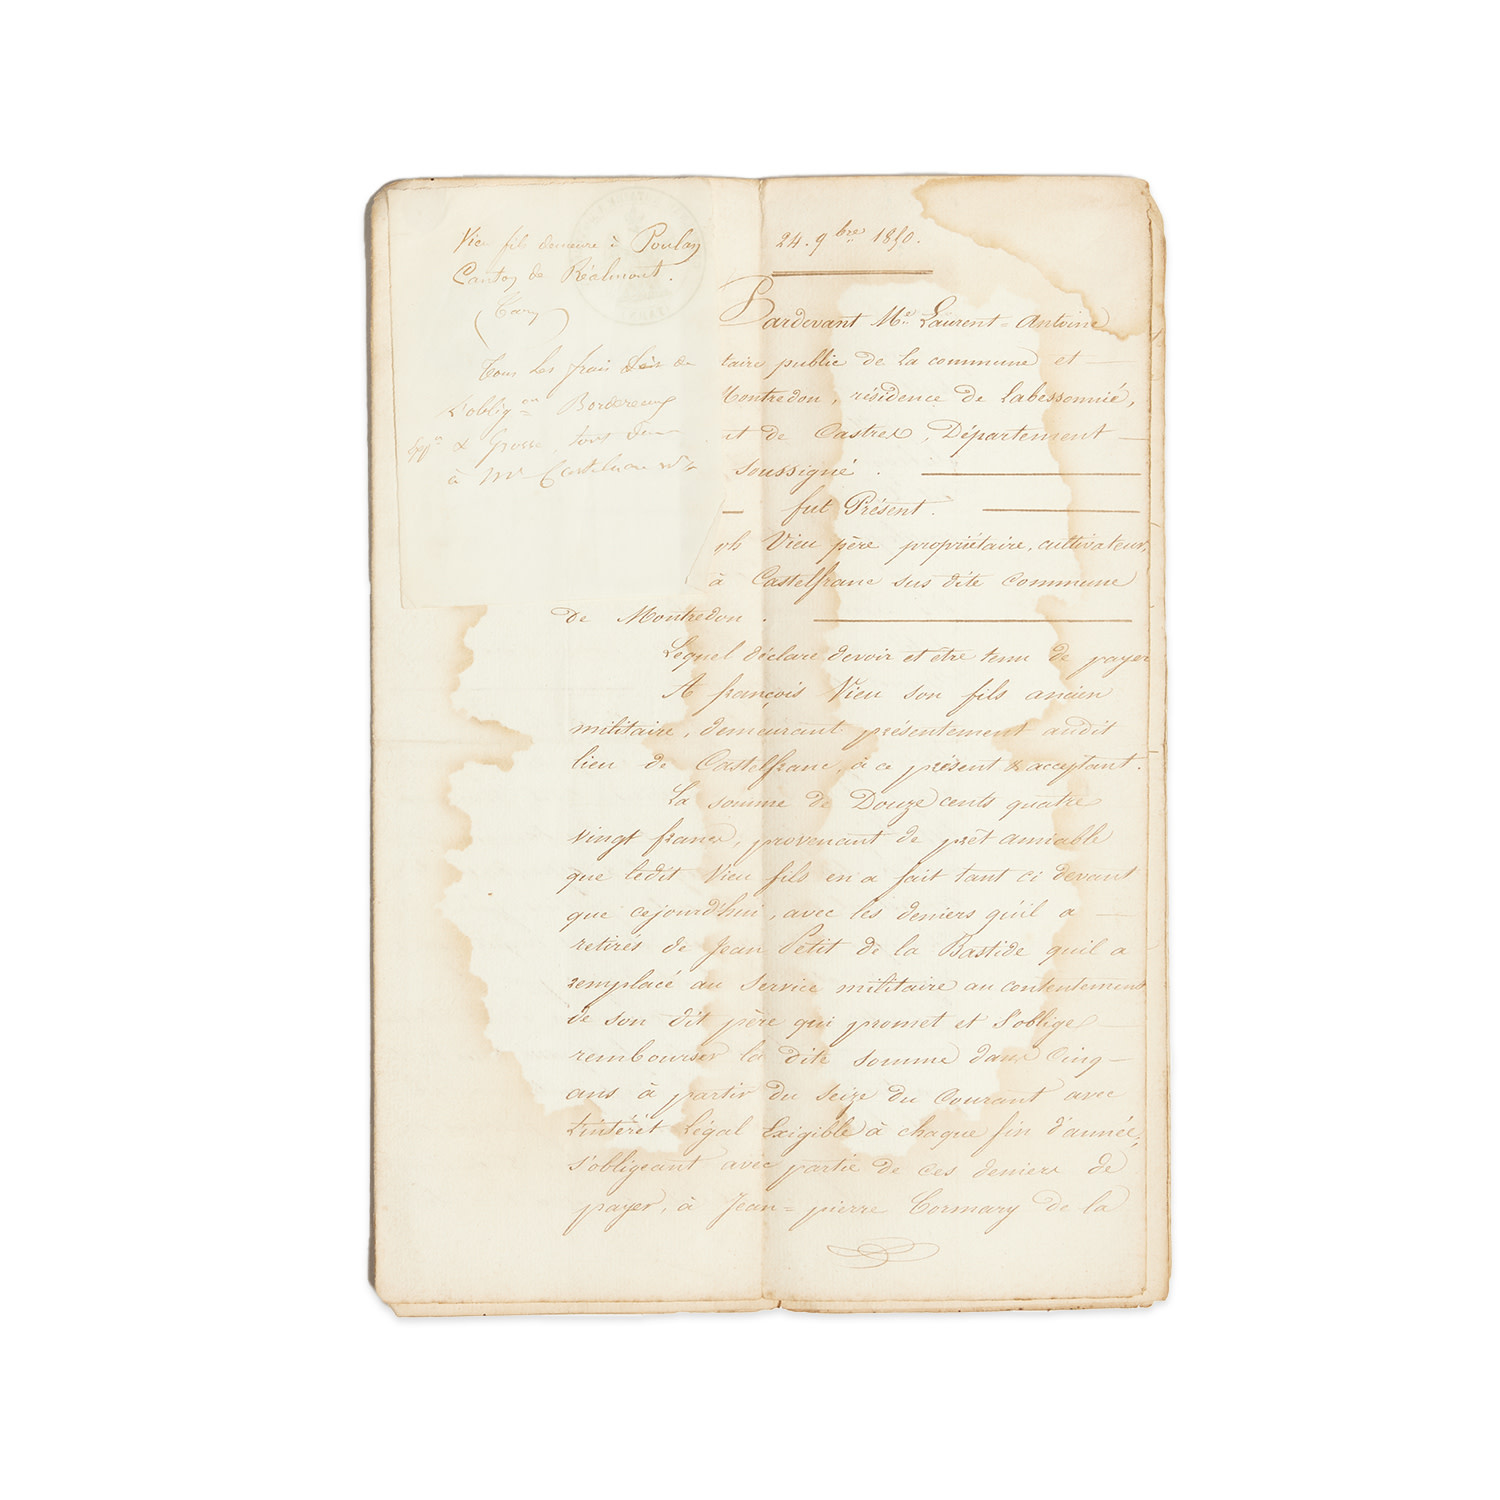 Vieu fils demeure à Poulan
Canton de Réalmont.
(Tarn)
Tous les frais de
L'oblig.on Bordereaux
& Grosse, sont dus
à Mr
24. 9bre 1850.
Pardevant Me. Laurent=Antoine
taire public de la commune et
Montredon, résidence de Labessonnié,
nt de Castres, Département
soussigné.
fut Présent.
ph Vieu père propriétaire, cultivateur,
à Castelfranc sus dite commune
de Montredon.
Lequel déclare devoir et être tenu de payer
A françois Vieu son fils ancien
militaire, demeurant présentement audit
lieu de Castelfranc, à ce présent & acceptant.
La somme de Douze cents quatre
vingt francs, provenant de prêt amiable
que ledit Vieu fils en a fait tant ci devant
que cejourd'hui, avec les deniers qu'il a
retirés de Jean Petit de la Bastide quil a
remplacé au service militaire au contentement
de son dit père qui promet et s'oblige
rembourser la dite somme dans cinq
ans à partir du seize du courant avec
L'intérêt Légal Exigible à chaque fin d'année,
s'obligeant avec partie de ces deniers de
payer, à Jean=pierre Cormary de la